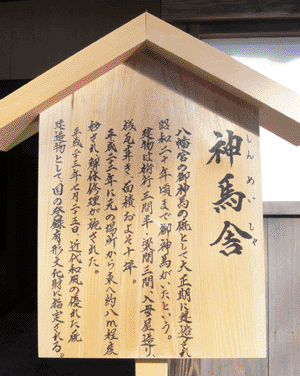 神馬舎
しんめいしゃ
八幡宮の御神馬の厩として大正期に建造され
昭和二十年頃まで御神馬がいたという。
建物は桁行三間半、梁間三間、入母屋造り、
桟瓦葺き、面積およそ十坪。
平成二十三年に元の場所から東へ約八m程度
移され、解体修理が施された。
平成二十三年七月二十五日、近代和風の優れた厩
建造物として、国の登録有形文化財に指定される。